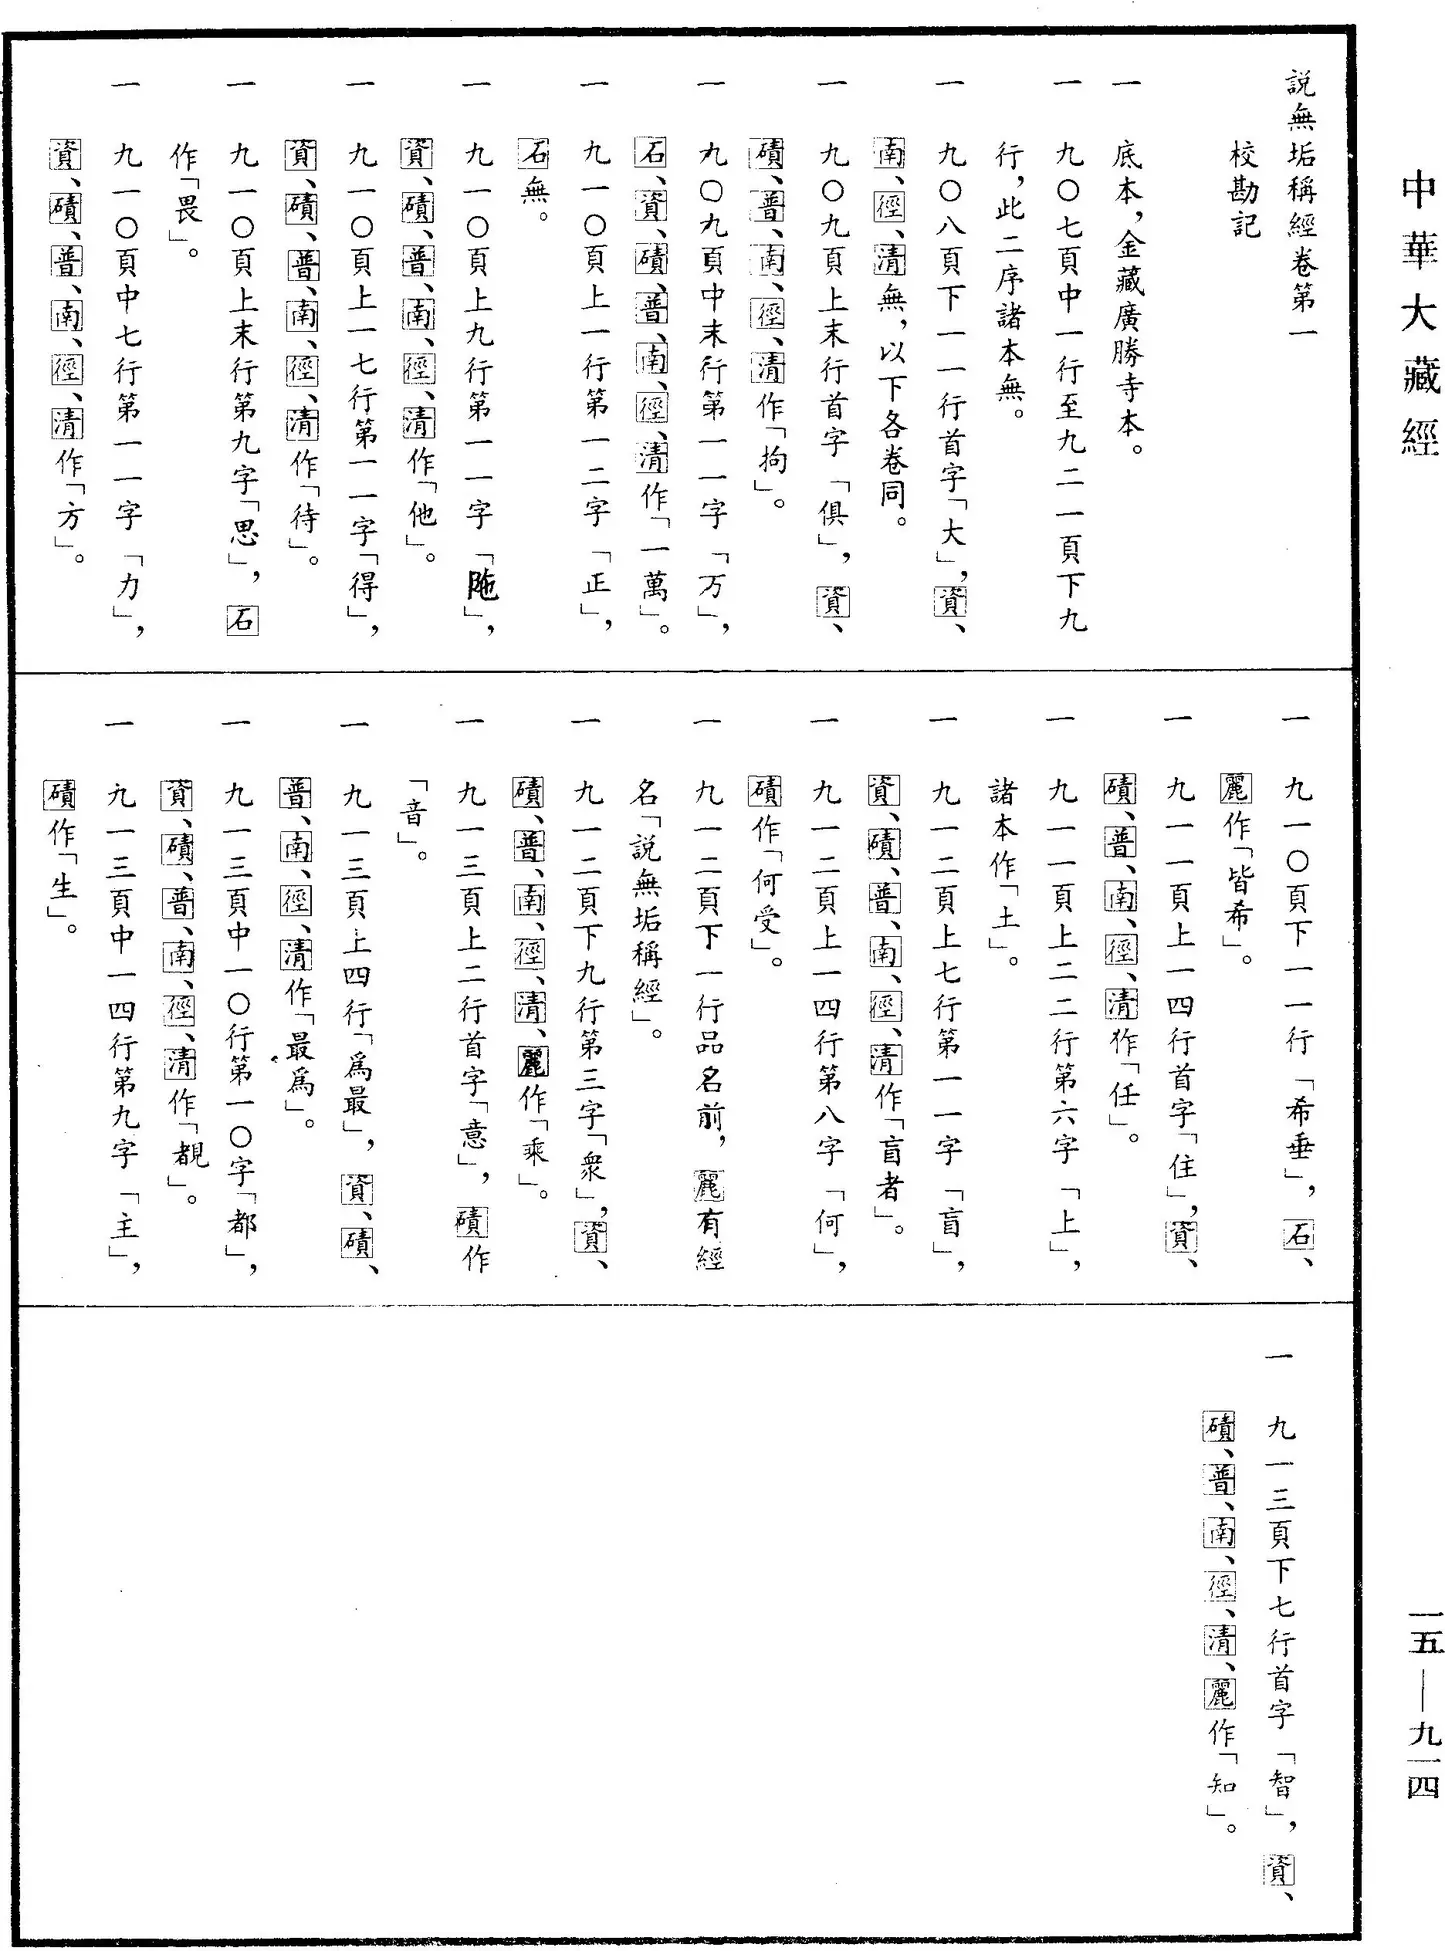 中華大藏經
説無垢稱經卷第一
校勘記
一　底本，金藏廣勝寺本。
一　九〇七頁中一行至九二一頁下九
行，此二序諸本無。
一　九〇八頁下一一行首字「大」，資、
南、徑、清無，以下各卷同。
一　九〇九頁上末行首字「俱」，資、
磧、普、南、徑、清作「拘」。
一　九〇九頁中末行第一一字「万」，
石、資、磧、普、南、徑、清作「一萬」。
一　九一〇頁上一行第一二字「正」，
石無。
一　九一〇頁上九行第一一字「陁」，
資、磧、普、南、徑、清作「他」。
一　九一〇頁上一七行第一一字「得」，
資、磧、普、南、徑、清作「待」。
一　九一〇頁上末行第九字「思」，石
作「畏」。
一　九一〇頁中七行第一一字「力」，
資、磧、普、南、徑、清作「方」。
一　九一〇頁下一一行「希垂」，石、
麗作「皆希」。
一　九一一頁上一四行首字「住」，資、
磧、普、南、徑、清作「任」。
一　九一一頁上二二行第六字「上」，
諸本作「土」。
一　九一二頁上七行第一一字「盲」，
資、磧、普、南、徑、清作「盲者」。
一　九一二頁上一四行第八字「何」，
磧作「何受」。
一　九一二頁下一行品名前，麗有經
名「説無垢稱經」。
一　九一二頁下九行第三字「衆」，資、
磧、普、南、徑、清、麗作「乘」。
一　九一三頁上二行首字「意」，磧作
「音」。
一　九一三頁上四行「爲最」，資、磧、
普、南、徑、清作「最爲」。
一　九一三頁中一〇行第一〇字「都」，
資、磧、普、南、徑、清作「覩」。
一　九一三頁中一四行第九字「主」，
磧作「生」。
一　九一三頁下七行首字「智」，資、
磧、普、南、徑、清、麗作「知」。
一五—九一四